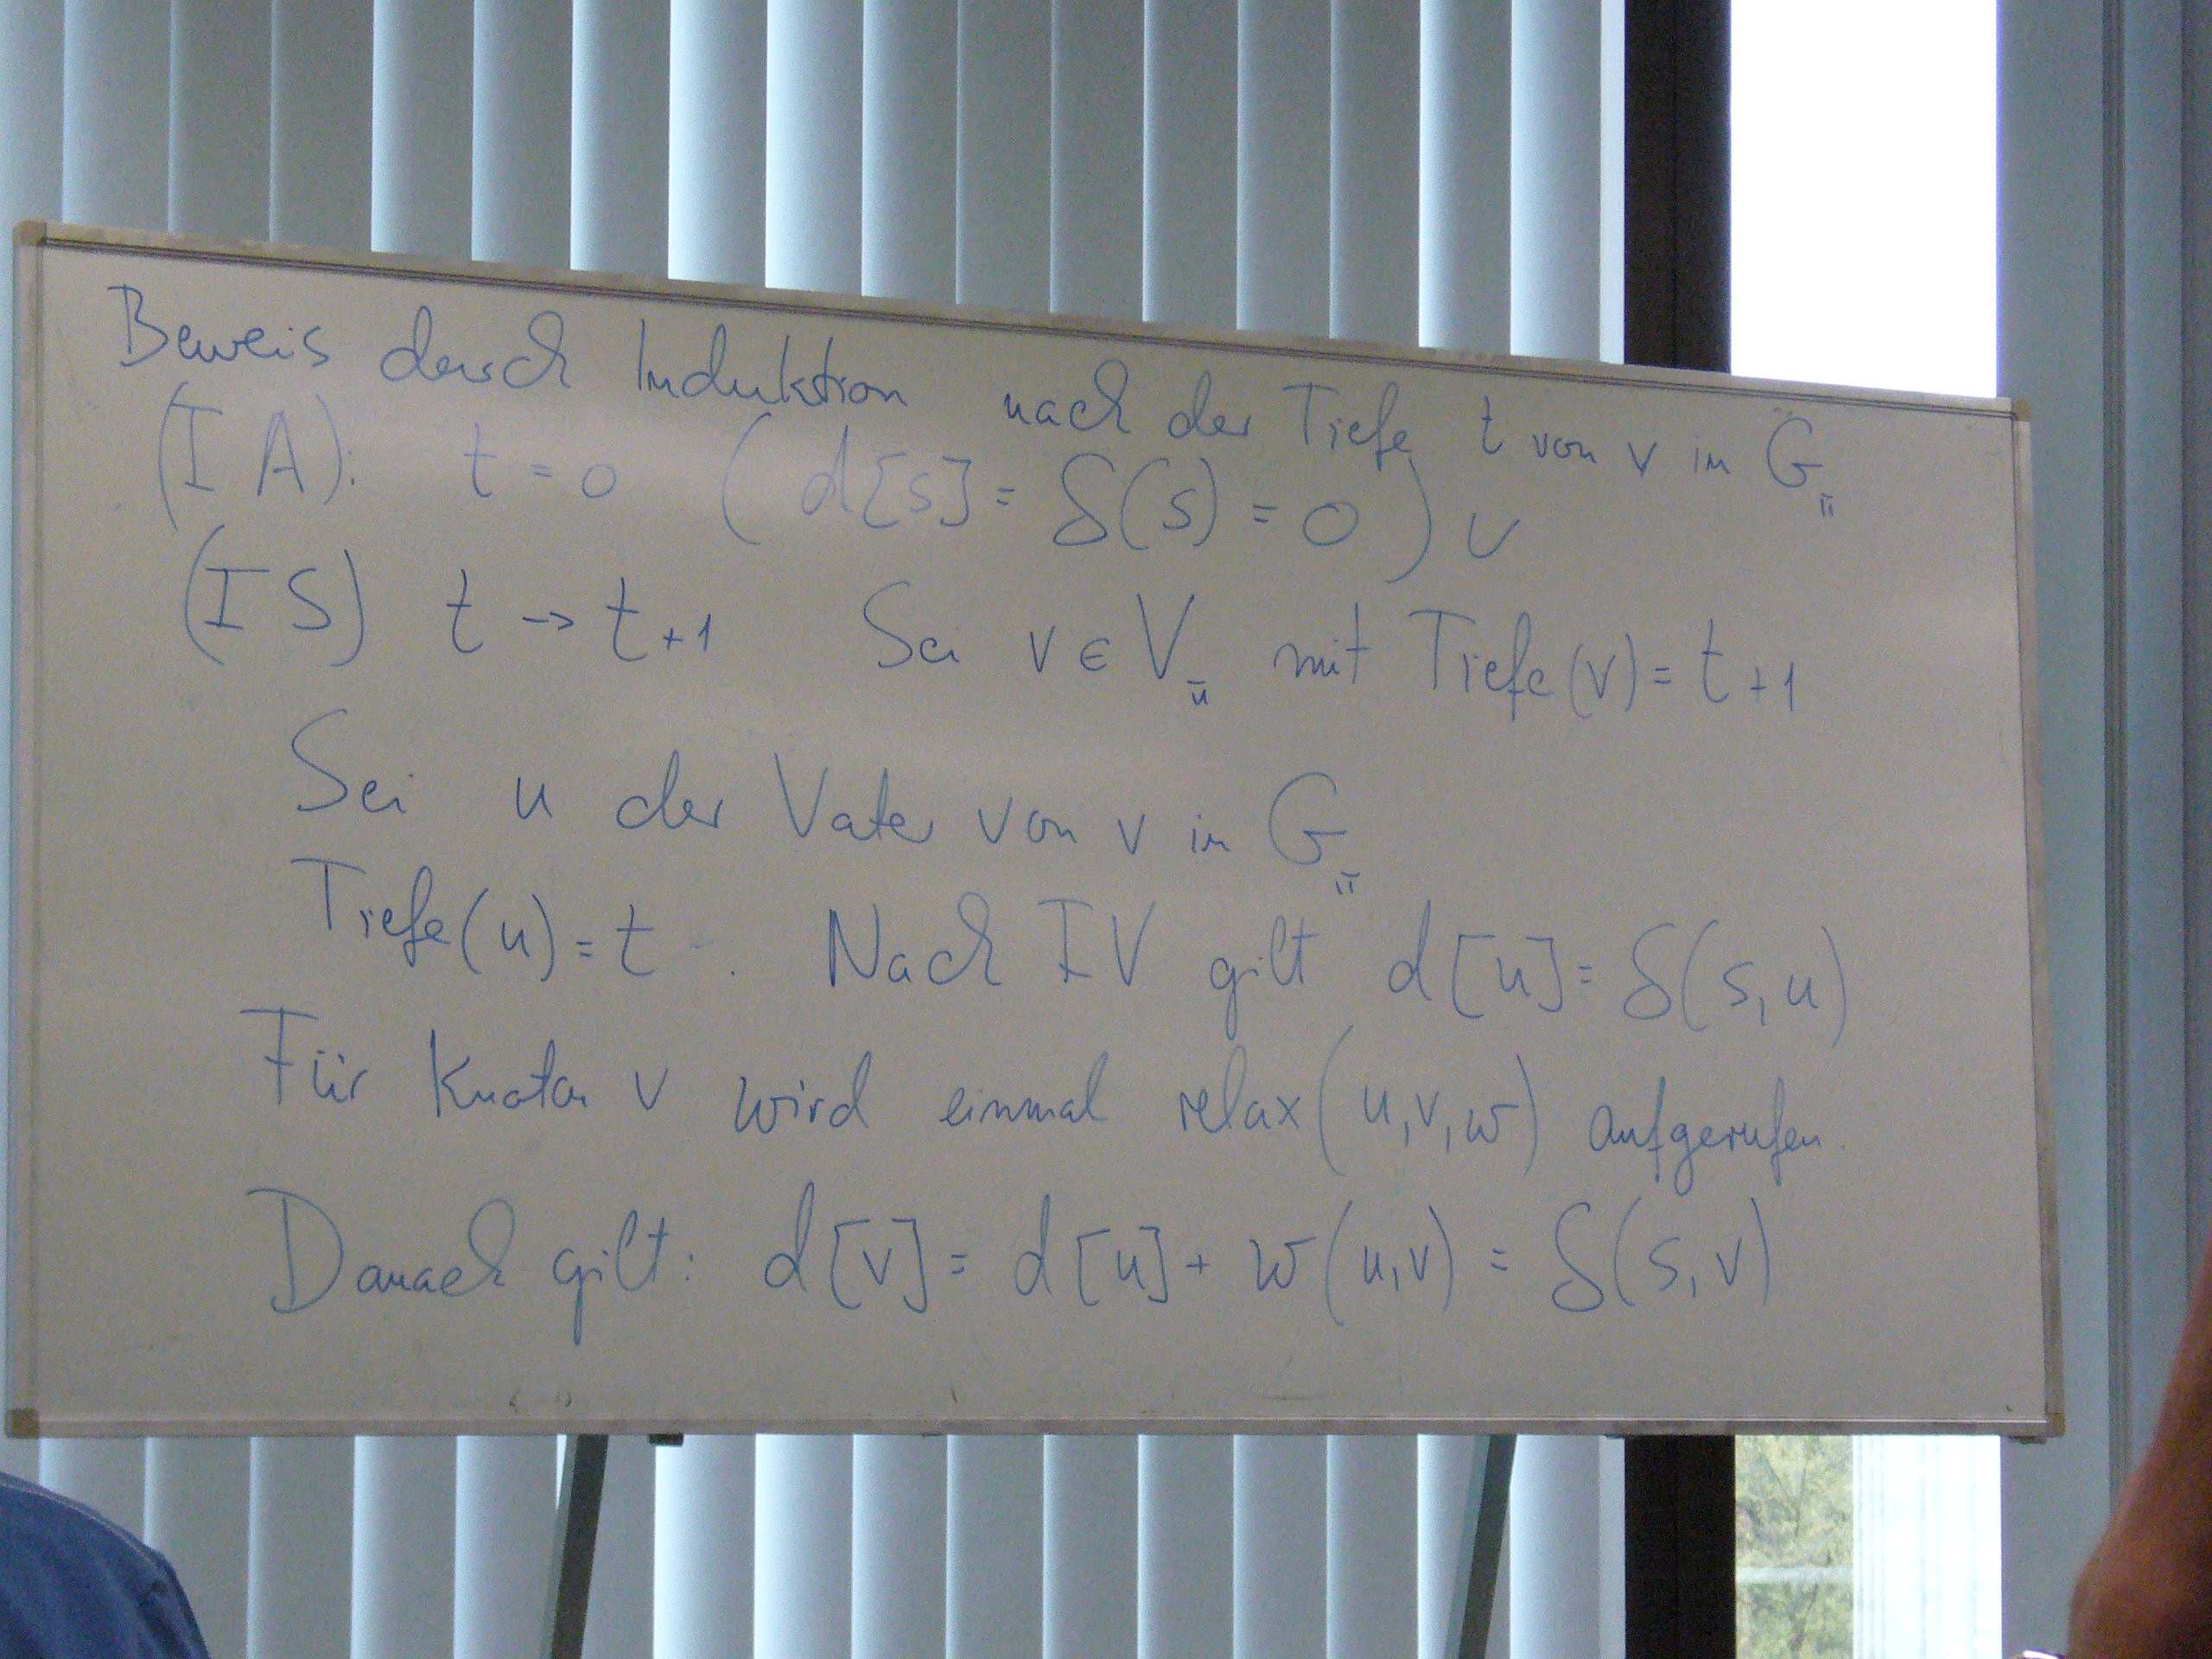 Beweis durch Induktion nach der Tiefe t von v in G_π
(IA): t = 0 ( d[s] = δ(s) = 0 ) ✓
(IS) t → t+1 Sei v ∈ V_π mit Tiefe(v) = t+1
Sei u der Vater von v in G_π
Tiefe(u) = t . Nach IV gilt d[u] = δ(s,u)
Für Knoten v wird einmal relax(u,v,w) aufgerufen.
Danach gilt: d[v] = d[u] + w(u,v) = δ(s,v)